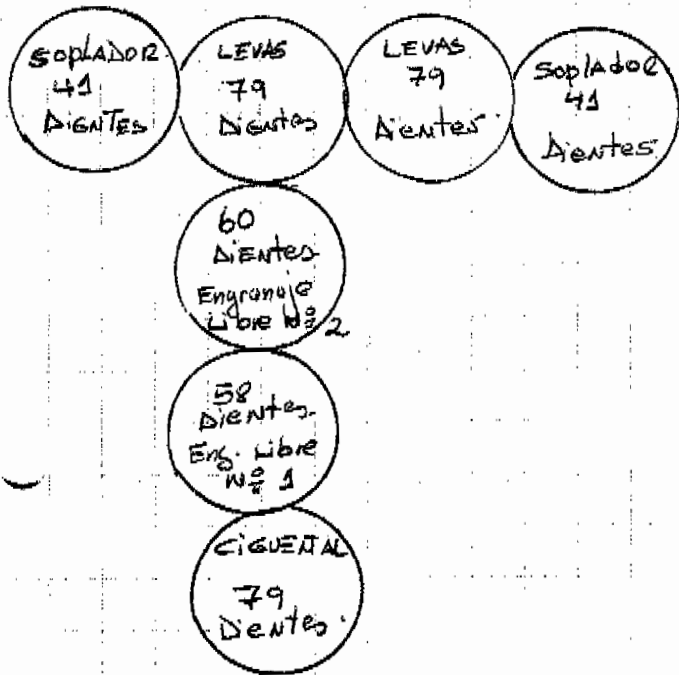 SOPLADOR
41
DIENTES
LEVAS
79
Dientes
LEVAS
79
Dientes
Soplador
41
Dientes
60
DiENtes
Engranaje
Libre Nº 2
58
Dientes
Eng. Libre
Nº 1
CiGUEÑAL
79
Dientes